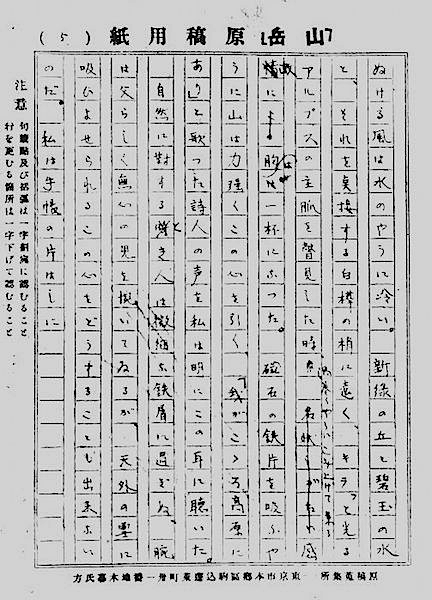 「山岳」原稿用紙 (5)
ぬける風は水のやうに冷い。新緑の丘と碧玉の水
と、それを点接する白樺の梢に遠く、キラッと光る
アルプスの主脈を瞥見した時
によ 胸は一杯になつた。磁石の鉄片を吸ふや
うに山は力強くこの心を引く。「我がこゝろ高原に
あり」と歌つた詩人の声を私は明にこの耳に聴いた。
自然に対する 人は微細な鉄屑に過ぎぬ。
は父らしく無心の児を招いてゐるが 天外の霊に
吸ひよせられるこの心をどうすることも出来ない
のだ。 私は手帳の片はしに
注意 句読点及び括弧は一字割宛に認むること
行を更むる箇所は一字下げて認むること
原稿蒐集所 東京市本郷区駒込蓬莱町卅一番地木暮氏方